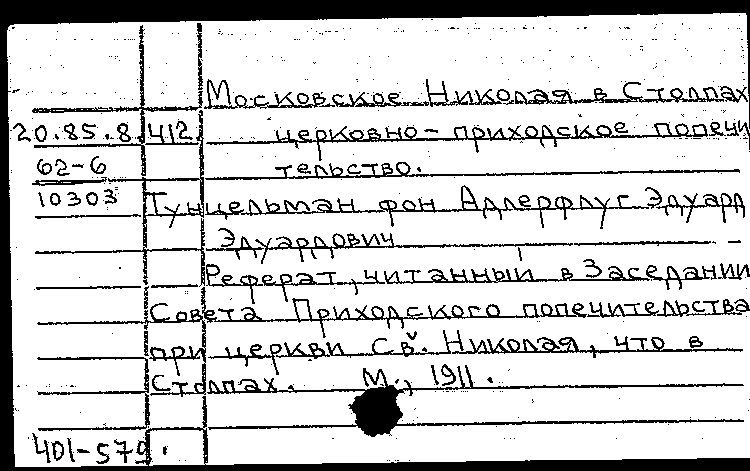 Московское Николая в Столпах
20.85.8.412. церковно-приходское попечи
62-6 тельство.
10303 Тунцельман фон Адлерфлуг Эдуард
Эдуардович
Реферат, читанный в Заседании
Совета Приходского попечительства
при церкви Св. Николая, что в
Столпах. М., 1911.
401-579.